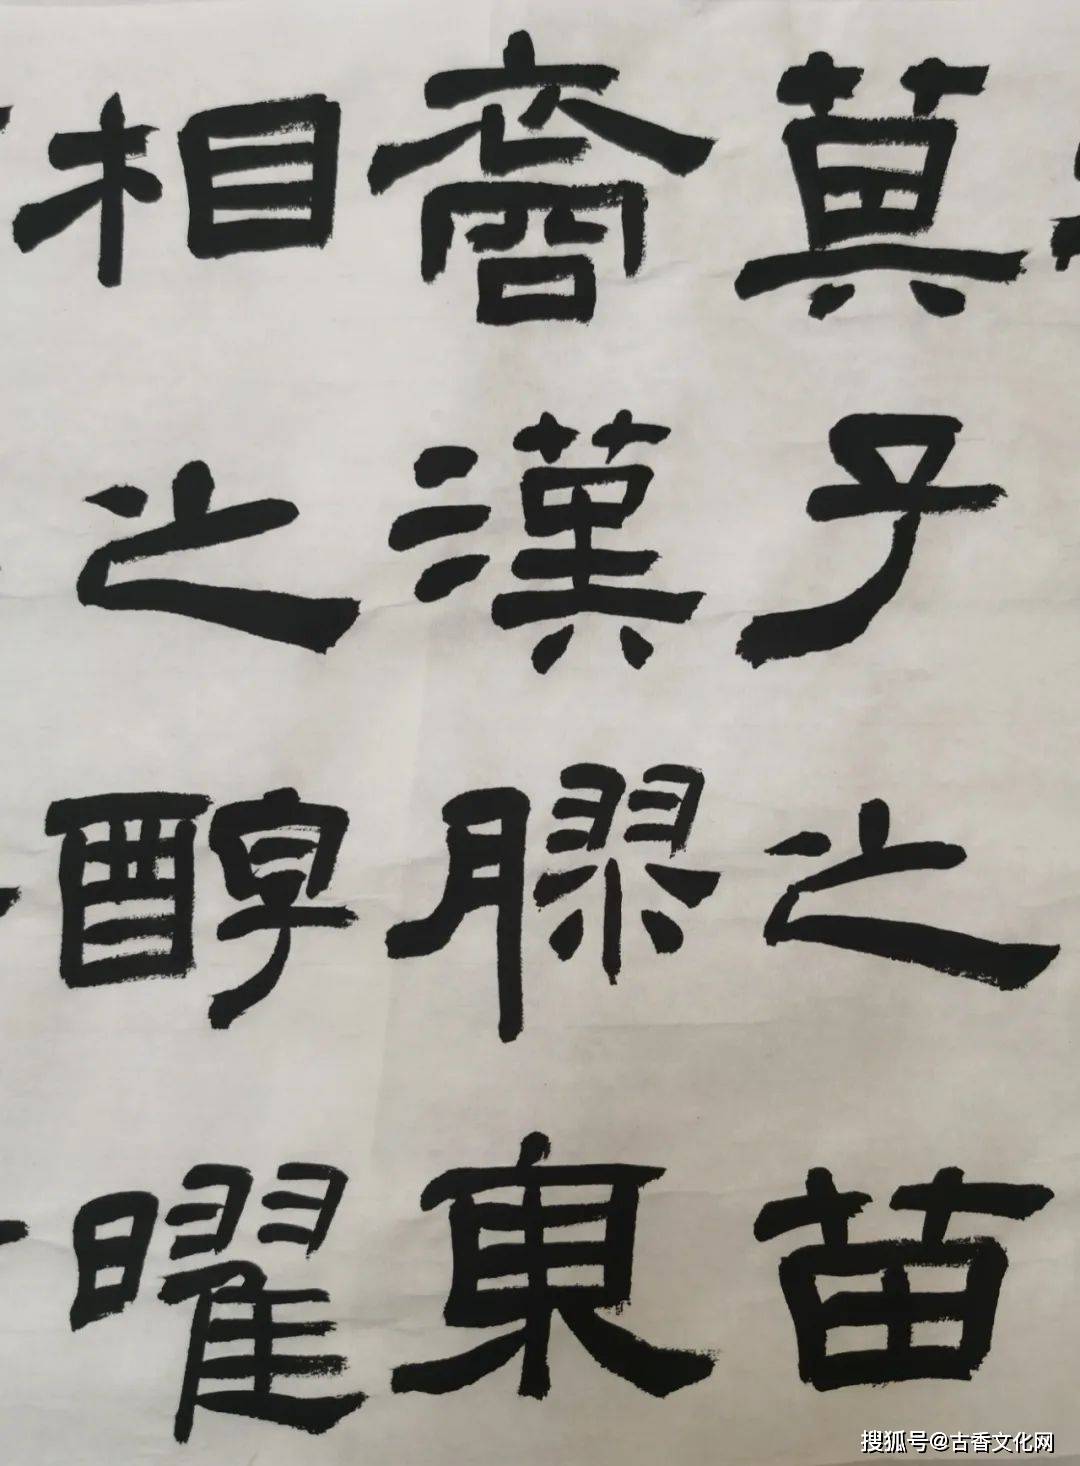 箕子之苗
裔漢膠東
相之醇曜
搜狐号@古香文化网